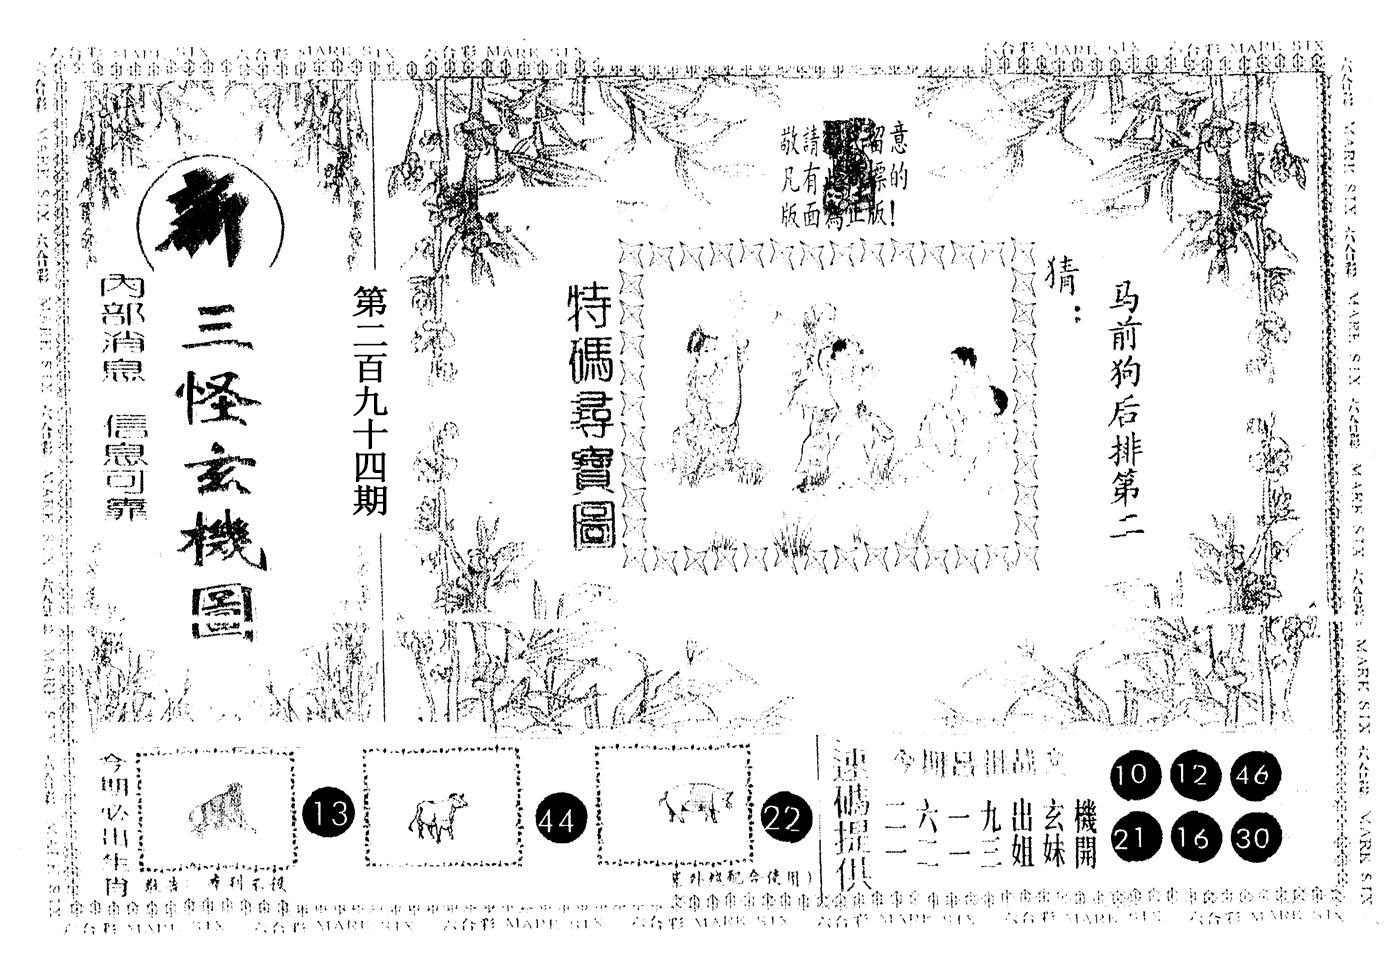 六合彩 MARK SIX 六合彩 MARK SIX 六合彩 MARK SIX
六合彩 MARK SIX 六合彩 MARK SIX
新
三怪玄機圖
內部消息 信息可靠
第二百九十四期
敬請 留意
凡有 標的
版面為正版!
特碼尋寶圖
猜:
马前狗后排第二
今期必出生肖
13
44
22
敬告:
紫外线配合使用)
速碼提供
機開
玄妹
出姐
九三
一一
六二
二一
10 12 46
21 16 30
六合彩 MARK SIX 六合彩 MARK SIX 六合彩 MARK SIX 六合彩 MARK SIX 六合彩 MARK SIX 六合彩 MARK SIX 六合彩 MARK SIX